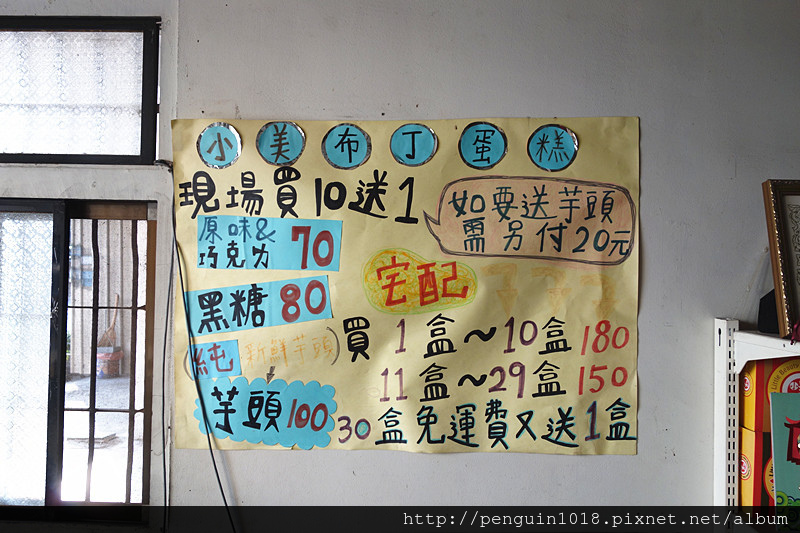 小美布丁蛋糕
現場買10送1
如要送芋頭
需另付20元
原味&
巧克力 70
黑糖 80
宅配
(純新鮮芋頭)
芋頭100
買1盒~10盒180
11盒~29盒150
30盒免運費又送1盒
http://penguin1018.pixnet.net/album